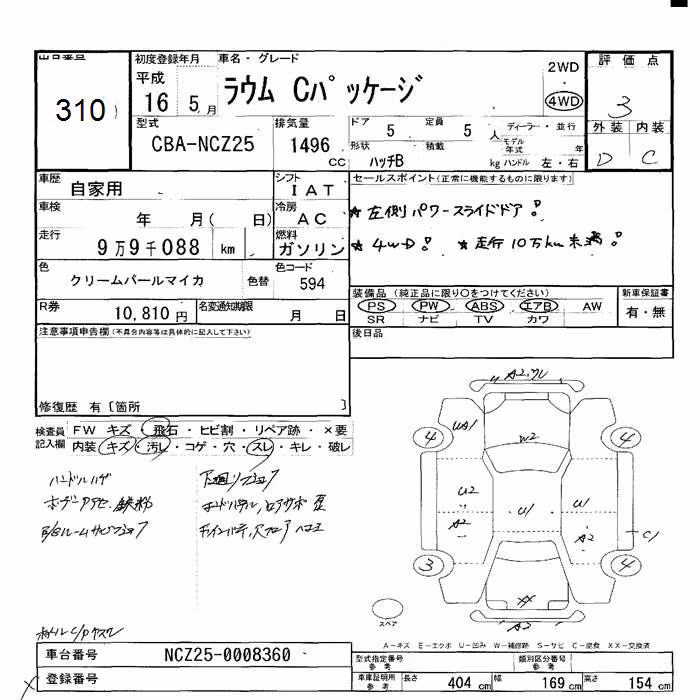 出品番号
310
初度登録年月
平成
16 5 月
車名・グレード
ラウム Cパッケージ
2WD
4WD
評価点
3
外装 内装
D C
型式
CBA-NCZ25
排気量
1496
CC
ドア 5 定員 5 人
形状 積載 kg
ハッチB
ディーラー・並行
モデル年式 年
ハンドル 左・右
車歴
自家用
シフト
IAT
車検
年 月( 日)
冷房
AC
走行
9万9千088 km
燃料
ガソリン
色
クリームパールマイカ
色替
色コード
594
R券
10,810 円
名変通知期限
月 日
セールスポイント(正常に機能するものに限ります)
★左側パワースライドドア!
★4WD! ★走行10万km未満!
装備品(純正品に限り○をつけてください)
PS PW ABS エアB AW
SR ナビ TV カワ
新車保証書
有・無
後日品
注意事項申告欄(不具合内容等は具体的に記入して下さい)
修復歴 有〔箇所 〕
検査員記入欄
FW キズ・飛石・ヒビ割・リペア跡・×要
内装・キズ・汚レ・コゲ・穴・スレ・キレ・破レ
ハンドルハゲ
下廻リ
鉄粉
A2
4 UA1 W2 4
U2 U1 U1
A2 A2 C1
3 XX 4
A2
スペア
A-キズ E-エクボ U-凹み W-補修跡 S-サビ C-腐食 XX-交換済
車台番号
NCZ25-0008360
登録番号
型式指定番号 参考
類別区分番号 参考
車庫証明用 参考
長さ 404 cm 幅 169 cm 高さ 154 cm